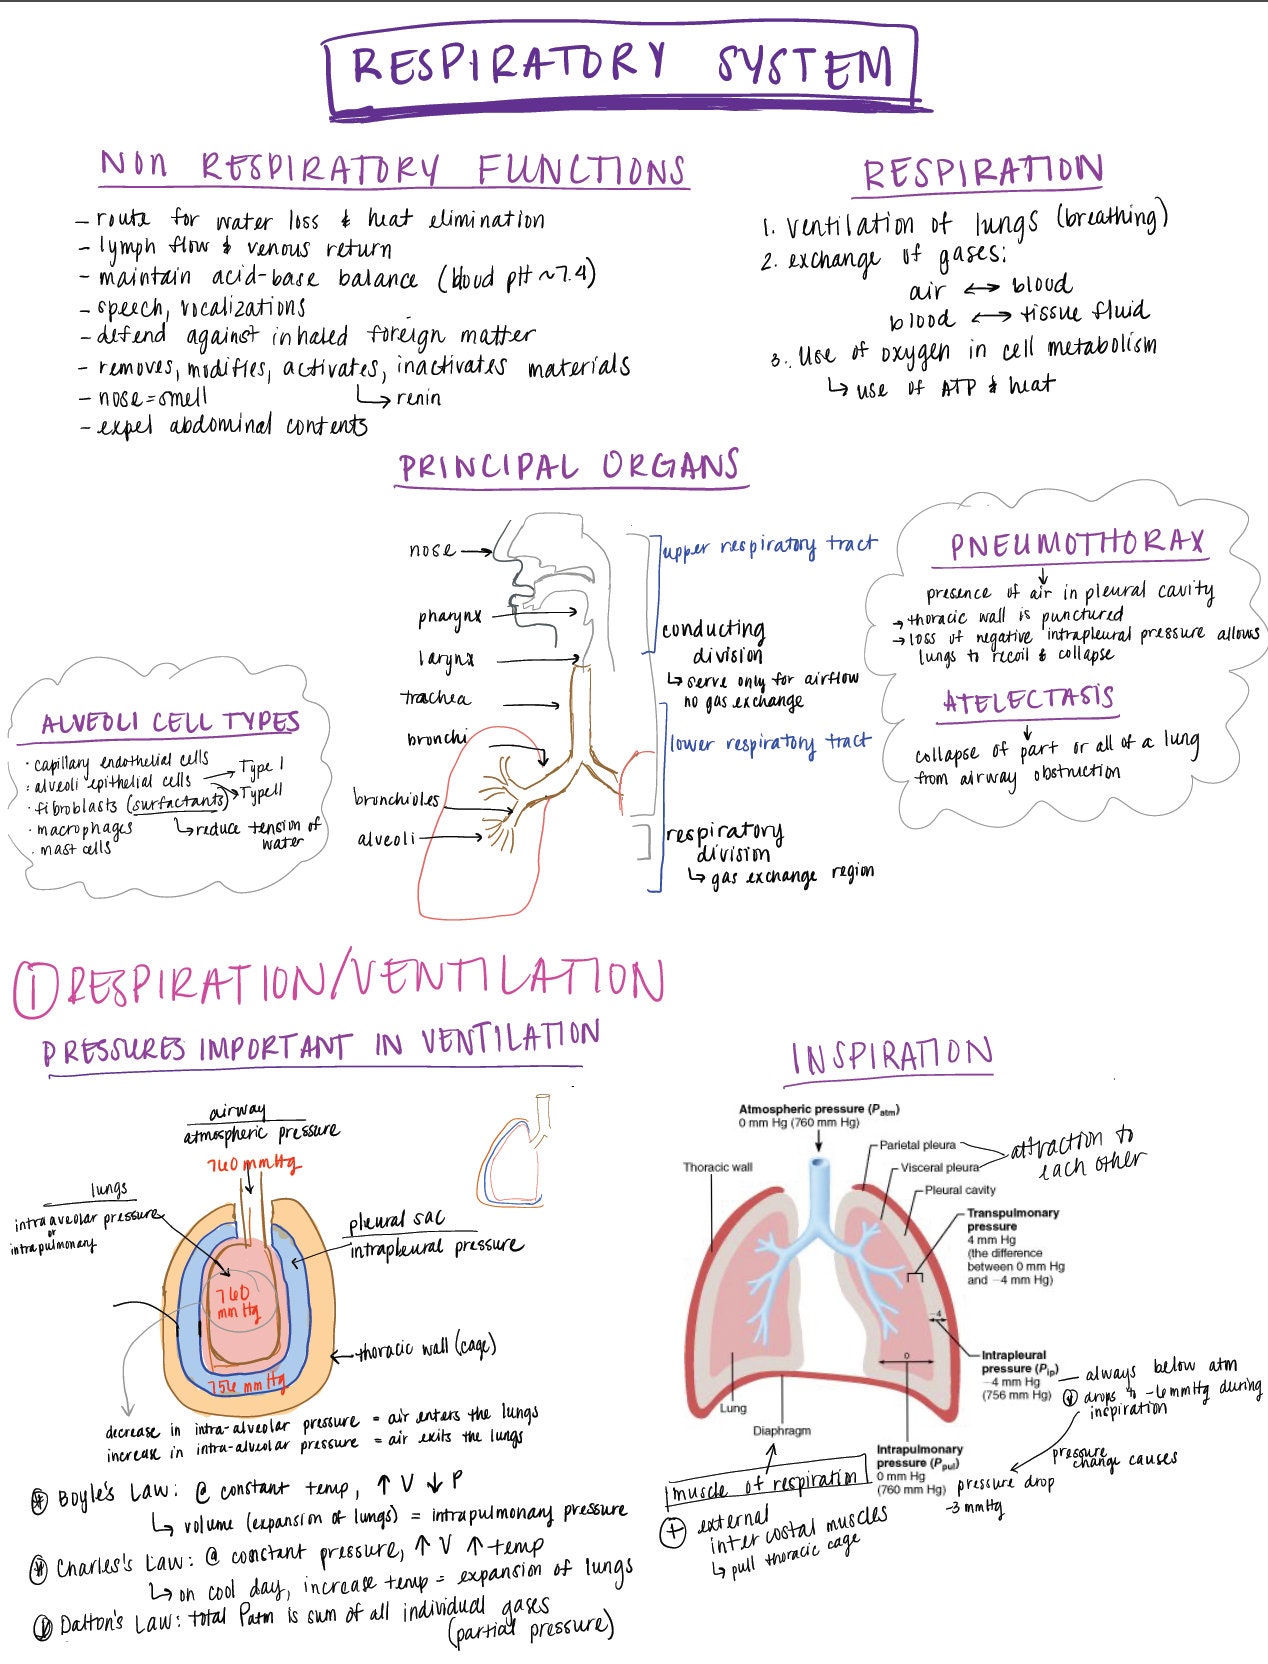 RESPIRATORY SYSTEM
NON RESPIRATORY FUNCTIONS
- route for water loss & heat elimination
- lymph flow & venous return
- maintain acid-base balance (blood pH ~7.4)
- speech, vocalizations
- defend against inhaled foreign matter
- removes, modifies, activates, inactivates materials
↳ renin
- nose = smell
- expel abdominal contents
RESPIRATION
1. ventilation of lungs (breathing)
2. exchange of gases:
air ↔ blood
blood ↔ tissue fluid
3. Use of oxygen in cell metabolism
↳ use of ATP & heat
PRINCIPAL ORGANS
nose
pharynx
larynx
trachea
bronchi
bronchioles
alveoli
upper respiratory tract
conducting
division
↳ serve only for airflow
no gas exchange
lower respiratory tract
respiratory
division
↳ gas exchange region
PNEUMOTHORAX
presence of air in pleural cavity
→ thoracic wall is punctured
→ loss of negative intrapleural pressure allows
lungs to recoil & collapse
ATELECTASIS
collapse of part or all of a lung
from airway obstruction
ALVEOLI CELL TYPES
· capillary endothelial cells
· alveoli epithelial cells → Type I
→ Type II
· fibroblasts (surfactants)
↳ reduce tension of
water
· macrophages
· mast cells
① RESPIRATION/VENTILATION
PRESSURES IMPORTANT IN VENTILATION
airway
atmospheric pressure
760 mmHg
lungs
intraaveolar pressure
or
intrapulmonary
pleural sac
intrapleural pressure
760
mm Hg
756 mm Hg
thoracic wall (cage)
decrease in intra-alveolar pressure = air enters the lungs
increase in intra-alveolar pressure = air exits the lungs
Boyle's Law: @ constant temp, ↑ V ↓ P
↳ volume (expansion of lungs) = intrapulmonary pressure
Charles's Law: @ constant pressure, ↑ V ↑ temp
↳ on cool day, increase temp = expansion of lungs
Dalton's Law: total Patm is sum of all individual gases
(partial pressure)
INSPIRATION
Atmospheric pressure (Patm)
0 mm Hg (760 mm Hg)
Thoracic wall
Parietal pleura
Visceral pleura
attraction to
each other
Pleural cavity
Transpulmonary
pressure
4 mm Hg
(the difference
between 0 mm Hg
and −4 mm Hg)
−4
0
Intrapleural
pressure (Pip)
−4 mm Hg
(756 mm Hg)
always below atm
drops to -6 mmHg during
inspiration
pressure
change causes
pressure drop
-3 mmHg
Lung
Diaphragm
Intrapulmonary
pressure (Ppul)
0 mm Hg
(760 mm Hg)
muscle of respiration
+ external
inter costal muscles
↳ pull thoracic cage